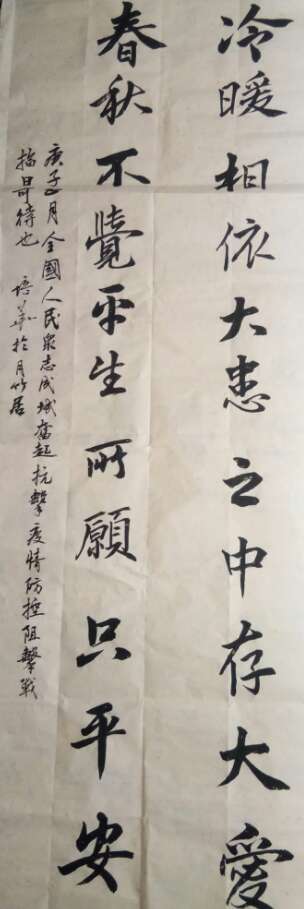 冷暖相依大恙之中存大愛
春秋不覺平生所願只平安
庚子月全國人民衆志成城奮起抗擊疫情防控阻擊戰
指日可待也 培華於月竹居